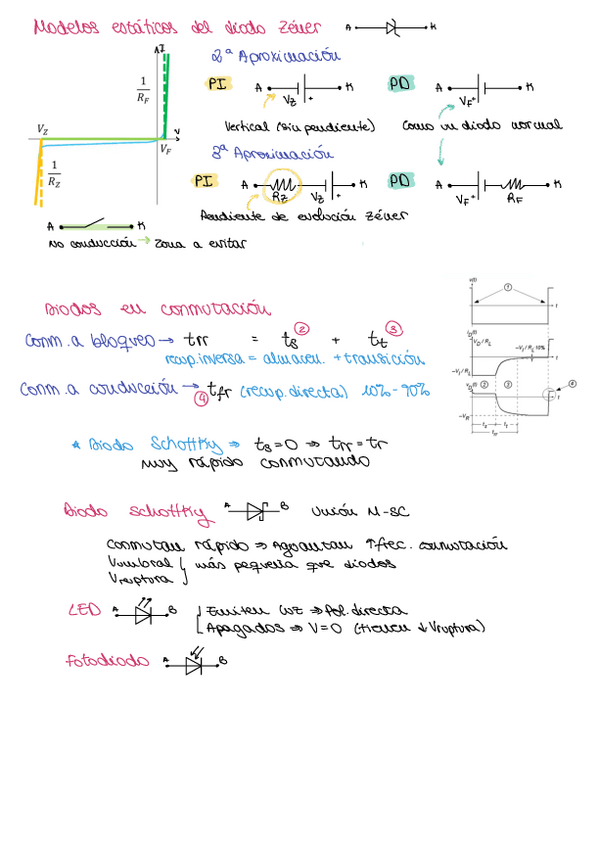 Modelos estáticos del diodo Zéner A K
I
2ª Aproximación
1/R_F
PI A K V_Z + PD A K V_F +
V_Z V V_F
Vertical (sin pendiente) Como un diodo normal
3ª Aproximación
1/R_Z
PI A R_Z V_Z + K PD A V_F + R_F K
Pendiente de evolución Zéner
A K
No conducción → Zona a evitar
Diodos en conmutación
Conm. a bloqueo → trr = ts ② + tt ③
recup. inversa = almacen. + transición
Conm. a conducción → ④ tfr (recup. directa) 10% - 90%
v(t) ① t
i_D(t)
V_D / R_L
-V_I / R_L 10%
t
-V_I / R_L
v_D(t) ② ③ ④
t
-V_R
t_s t_t
t_rr
* Diodo Schottky ⇒ ts = 0 ⇒ trr = tr
muy rápido conmutando
Diodo Schottky A B Unión M-SC
Conmutan rápido ⇒ Aguantan ↑ frec. conmutación
Vumbral } más pequeña que diodos
Vruptura
LED A B Emiten luz ⇒ Pol. directa
Apagados ⇒ V=0 (tienen ↓ Vruptura)
Fotodiodo A B